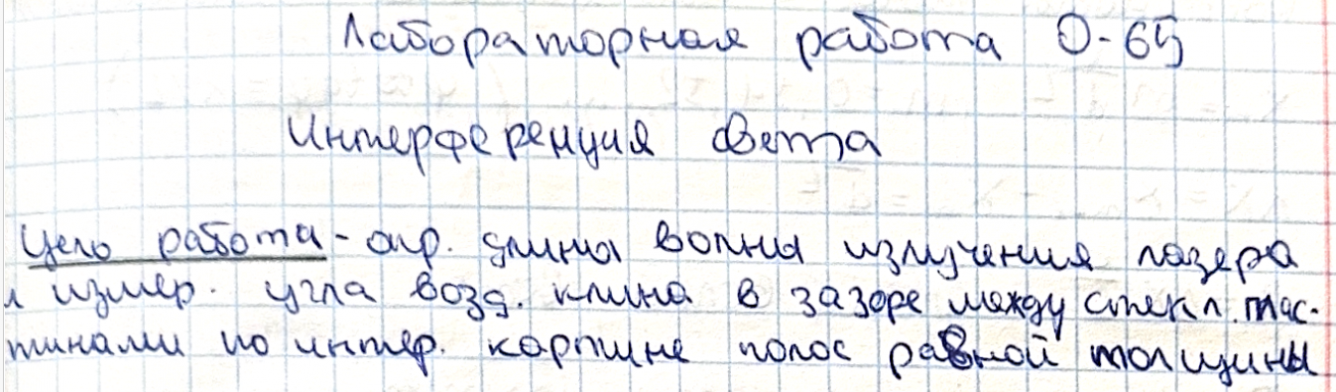 Лабораторная работа О-65
Интерференция света
Цель работы - опр. длины волны излучения лазера
и измер. угла возд. клина в зазоре между стекл. плас-
тинами по интер. картине полос равной толщины